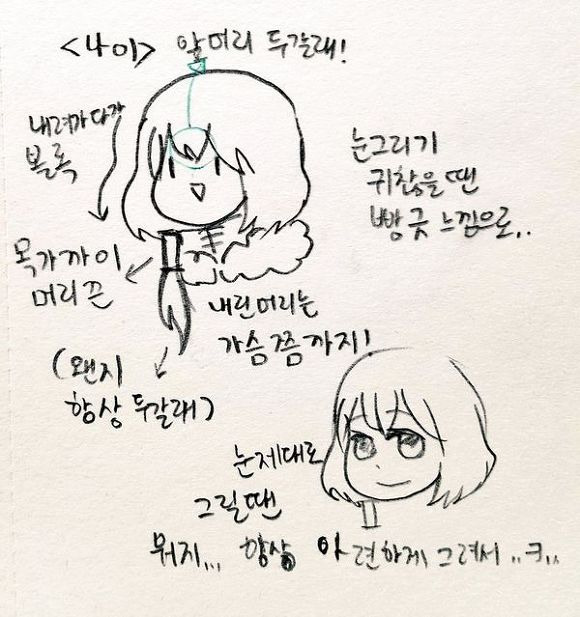 <나이> 앞머리 두갈래!
내려가다가
볼록
눈그리기
귀찮을땐
빵긋 느낌으로..
목가까이
머리끈
내린머리는
가슴쯤까지!
(왠지
항상 두갈래)
눈제대로
그릴땐
뭐지... 항상 야견하게 그려서 ..ㅋ..